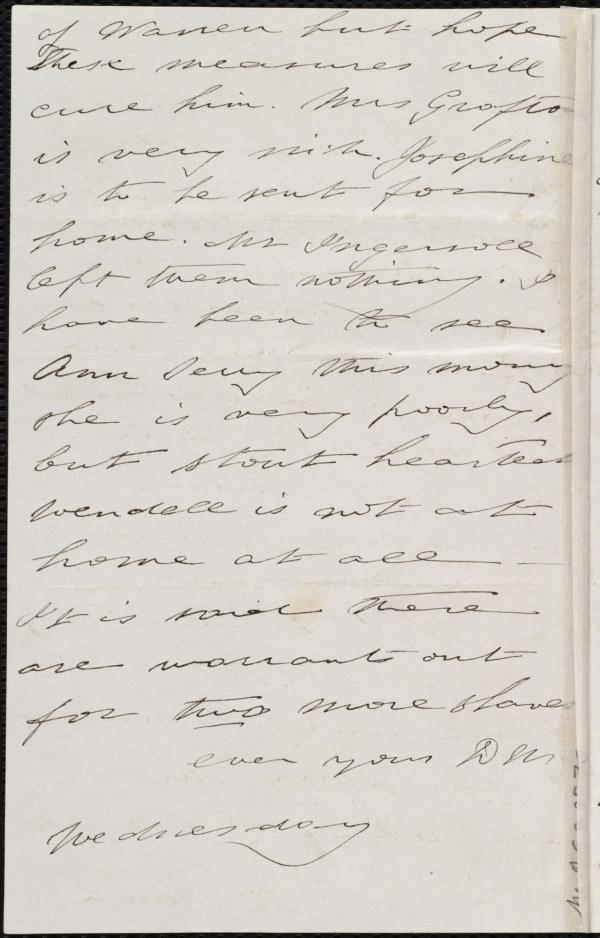 of Warren but hope
these measures will
cure him. Mrs Grafton
is very rich. Josephine
is to be sent for
home. Mr Ingersoll
left them nothing. I
have been to see
Ann Terry this morng
she is very poorly,
but stout hearted
Wendell is not at
home at all —
It is said there
are warrants out
for two more slaves
ever yours D W
Wednesday